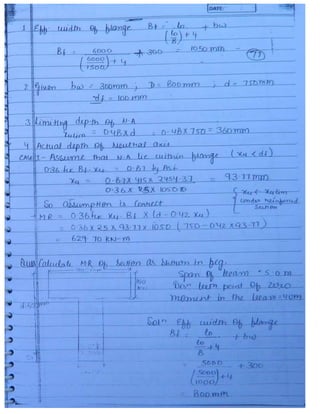 DATE:
1 Eff width Of flange Bf = lo / (lo/B)+4 + bw
Bf = 6000 / (6000/1500)+4 + 300 = 1050 mm
2 given bw = 300mm ; D = 800mm ; d = 750mm
df = 100mm
3 Limiting depth Of N.A
= 0.48 x d = 0.48 x 750 = 360mm
4 Actual depth of Neutral axis
Case 1- Assume that N.A. lie within flange (xu < df)
0.36 fck Bf xu = 0.87 fy Ast
xu = 0.87 x 415 x 2454.37 / 0.36 x 25 x 1050 = 93.77mm
So assumption is correct { xu < xulim
Under reinforced section
MR = 0.36 fck xu Bf x (d - 0.42 xu)
= 0.36 x 25 x 93.77 x 1050 (750 - 0.42 x 93.77)
= 629.70 kN-m
Calculate MR of section as shown in fig.
Span of beam = 5.0m
Sol^n Eff width Of flange
Bf = lo / lo/B + 4 + bw
= 5000 / (5000/1000)+4 + 300
= 800mm